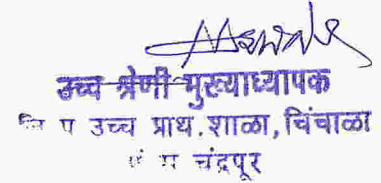 उच्च श्रेणी मुख्याध्यापक
प उच्च प्राथ. शाळा, चिंचाळा
चंद्रपूर